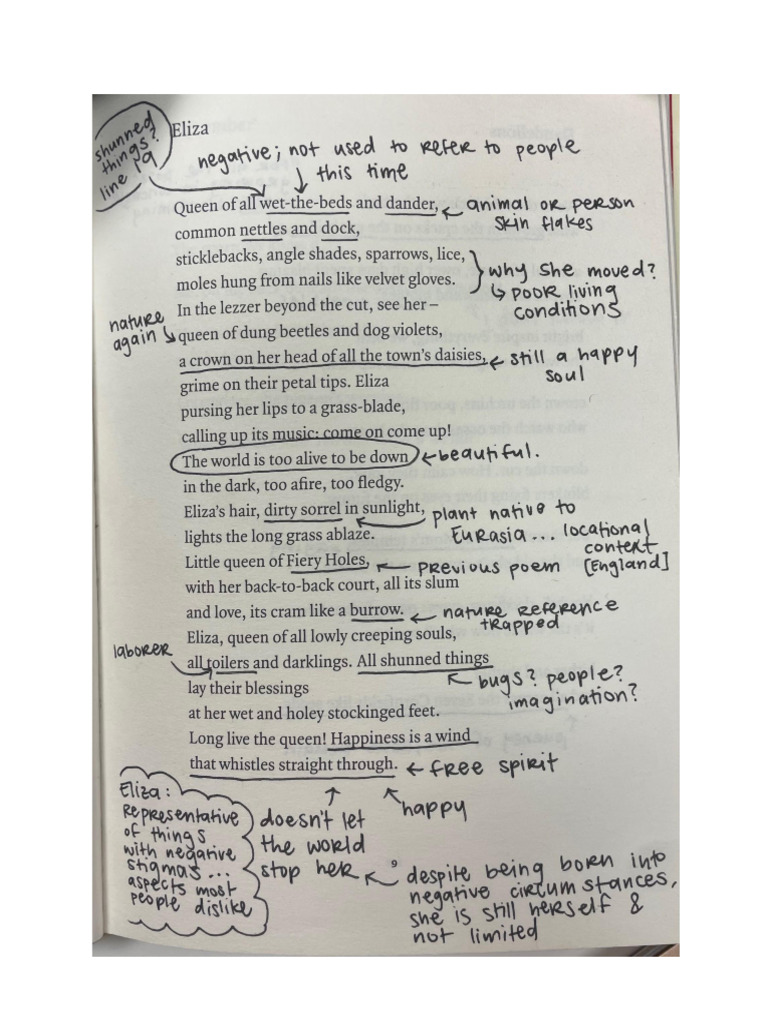 shunned
things?
line 19
Eliza
negative; not used to refer to people
this time
Queen of all wet-the-beds and dander,
animal or person
skin flakes
common nettles and dock,
sticklebacks, angle shades, sparrows, lice,
moles hung from nails like velvet gloves.
why she moved?
↳ poor living
conditions
In the lezzer beyond the cut, see her –
nature
again
queen of dung beetles and dog violets,
a crown on her head of all the town's daisies,
still a happy
soul
grime on their petal tips. Eliza
pursing her lips to a grass-blade,
calling up its music: come on come up!
The world is too alive to be down
beautiful.
in the dark, too afire, too fledgy.
Eliza's hair, dirty sorrel in sunlight,
plant native to
Eurasia... locational
context
[England]
lights the long grass ablaze.
Little queen of Fiery Holes,
previous poem
with her back-to-back court, all its slum
and love, its cram like a burrow.
nature reference
trapped
Eliza, queen of all lowly creeping souls,
laborer
all toilers and darklings. All shunned things
bugs? people?
imagination?
lay their blessings
at her wet and holey stockinged feet.
Long live the queen! Happiness is a wind
that whistles straight through.
free spirit
happy
doesn't let
the world
stop her
Eliza:
Representative
of things
with negative
stigmas...
aspects most
people dislike
9
despite being born into
negative circumstances,
she is still herself &
not limited